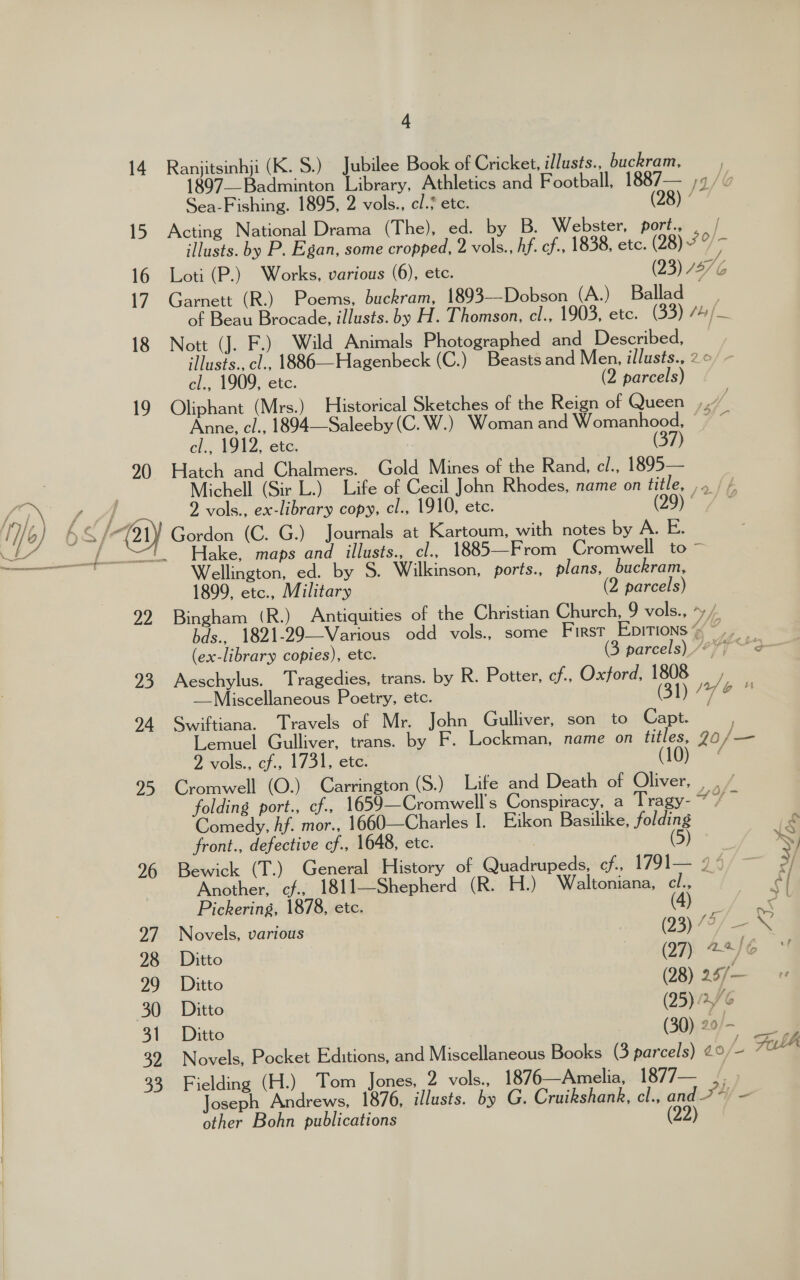 4
14 Ranjitsinhji (K. S.) Jubilee Book of Cricket, illusts., buckram,
1897—Badminton Library, Athletics and Football, 1887—
Sea-Fishing. 1895, 2 vols., cl., etc. (28)
15 Acting National Drama (The), ed. by B. Webster, port.,
illusts. by P. Egan, some cropped, 2 vols., hf. cf., 1838, etc. (28)
16 Loti (P.) Works, various (6), etc. (23)
17 Garnett (R.) Poems, buckram, 1893—Dobson (A.) Ballad
of Beau Brocade, illusts. by H. Thomson, cl., 1903, etc. (33)
18 Nott (J. F.) Wild Animals Photographed and Described,
illusts., cl., 1886—Hagenbeck (C.) Beasts and Men, illusts., 20/-
cl., 1909, etc. (2 parcels)
19 Oliphant (Mrs.) Historical Sketches of the Reign of Queen
Anne, cl., 1894—Saleeby (C. W.) Woman and Womanhood,
cl., 1912, etc. (37)
20 Hatch and Chalmers. Gold Mines of the Rand, cl., 1895—
Michell (Sir L.) Life of Cecil John Rhodes, name on title,
2 vols., ex-library copy, cl., 1910, etc. (29)
21 Gordon (C. G.) Journals at Kartoum, with notes by A. E.
Hake, maps and illusts., cl., 1885—From Cromwell to
Wellington, ed. by S. Wilkinson, ports., plans, buckram,
1899, etc., Military (2 parcels)
22 Bingham (R.) Antiquities of the Christian Church, 9 vols.,
bds., 1821-29—Various odd vols., some First Editions
(ex-library copies), etc. (3 parcels)
23 Aeschylus. Tragedies, trans. by R. Potter, cf., Oxford, 1808
—Miscellaneous Poetry, etc. (31)
24 Swiftiana. Travels of Mr. John Gulliver, son to Capt.
Lemuel Gulliver, trans. by F. Lockman, name on titles, 20/—
2 vols., cf., 1731, etc. (10)
25 Cromwell (O.) Carrington (S.) Life and Death of Oliver,
folding port., cf., 1659—Cromwell's Conspiracy, a Tragy-
Comedy, hf. mor., 1660—Charles I. Eikon Basilike, folding
front., defective cf., 1648, etc. (5)
26 Bewick (T.) General History of Quadrupeds, cf., 1791—
Another, cf., 1811—Shepherd (R. H.) Waltoniana, cl.,
Pickering, 1878, etc. (4)
27 Novels, various (23) 15/—
28 Ditto (27) 22/6
29 Ditto (28) 25/—
30 Ditto (25)
31 Ditto (30) 20/-
32 Novels, Pocket Editions, and Miscellaneous Books (3 parcels)
33 Fielding (H.) Tom Jones, 2 vols., 1876—Amelia, 1877—
Joseph Andrews, 1876, illusts. by G. Cruikshank, cl., and
other Bohn publications (22)